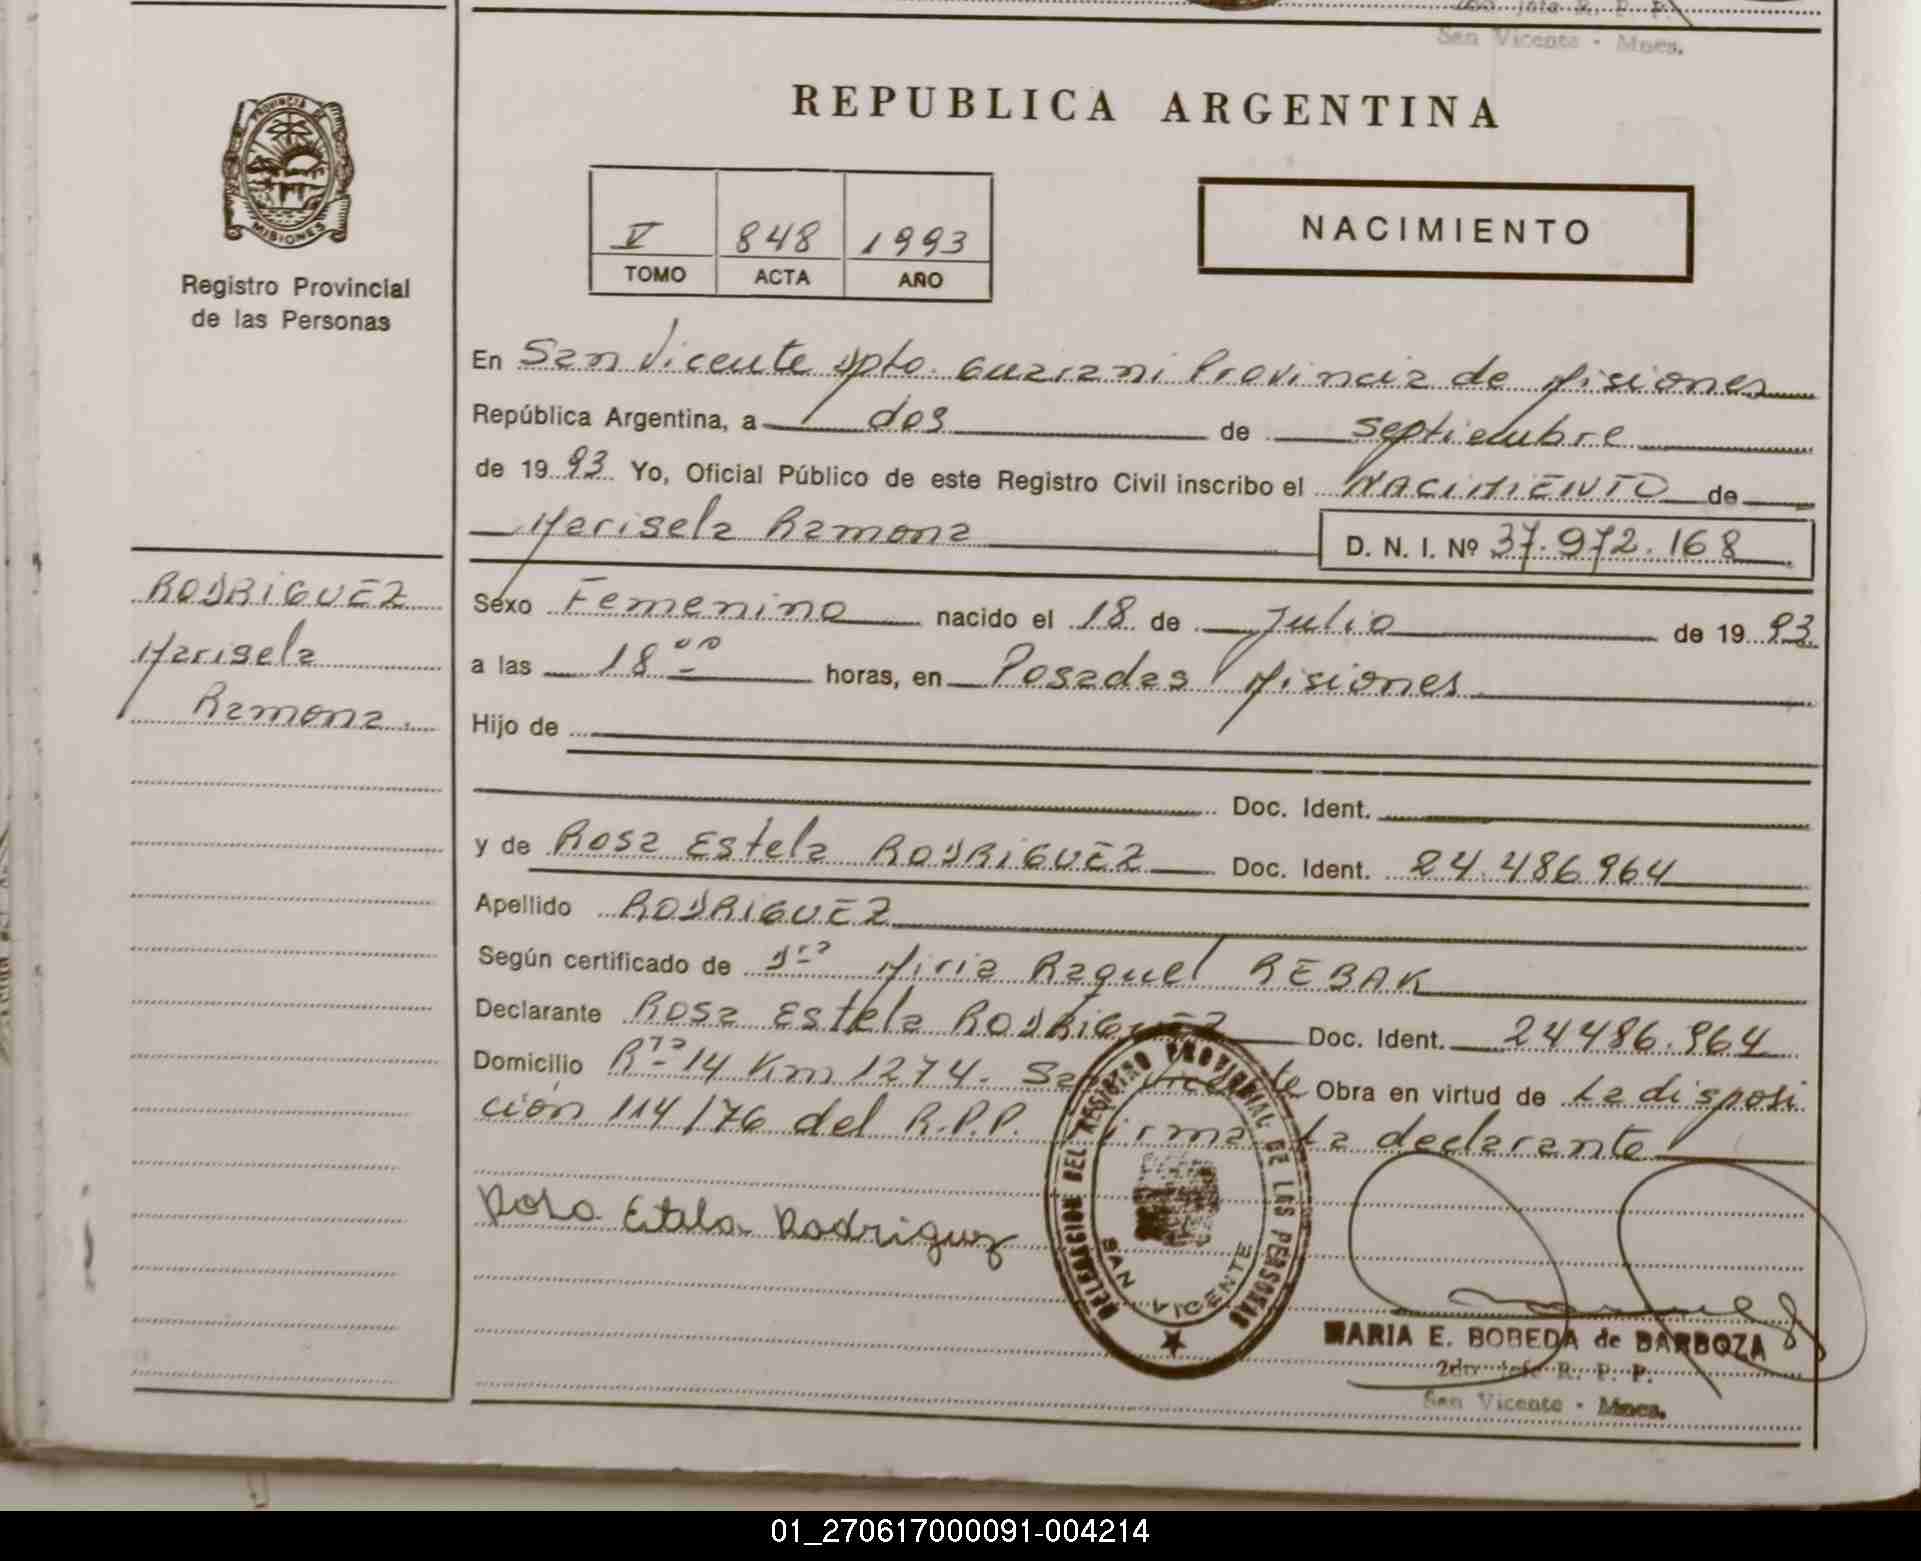 2do. Jefe R. P. P.
San Vicente - Mnes.
PROVINCIA DE
MISIONES
Registro Provincial
de las Personas
RODRIGUEZ
Marisela
Ramona.
REPUBLICA ARGENTINA
V 848 1993
TOMO ACTA AÑO
NACIMIENTO
En San Vicente Dpto. Guarani Provincia de Misiones
República Argentina, a dos de septiembre
de 1993 Yo, Oficial Público de este Registro Civil inscribo el NACIMIENTO de
Marisela Ramona D. N. I. Nº 37.972.168
Sexo Femenino nacido el 18 de Julio de 1993
a las 18 00 horas, en Posadas Misiones
Hijo de
Doc. Ident.
y de Rosa Estela RODRIGUEZ Doc. Ident. 24.486.964
Apellido RODRIGUEZ
Según certificado de Dra Miria Raquel REBAK
Declarante Rosa Estela RODRIGUEZ Doc. Ident. 24486.964
Domicilio Rta 14 Km 1274. San Vicente Obra en virtud de La disposi
ción 114/76 del R.P.P. Firma La declarante
Rosa Estela Rodriguez
DELEGACION DEL REGISTRO PROVINCIAL DE LAS PERSONAS
SAN VICENTE
MARIA E. BOBEDA de BARBOZA
2do. Jefe R. P. P.
San Vicente - Mnes.
01_270617000091-004214